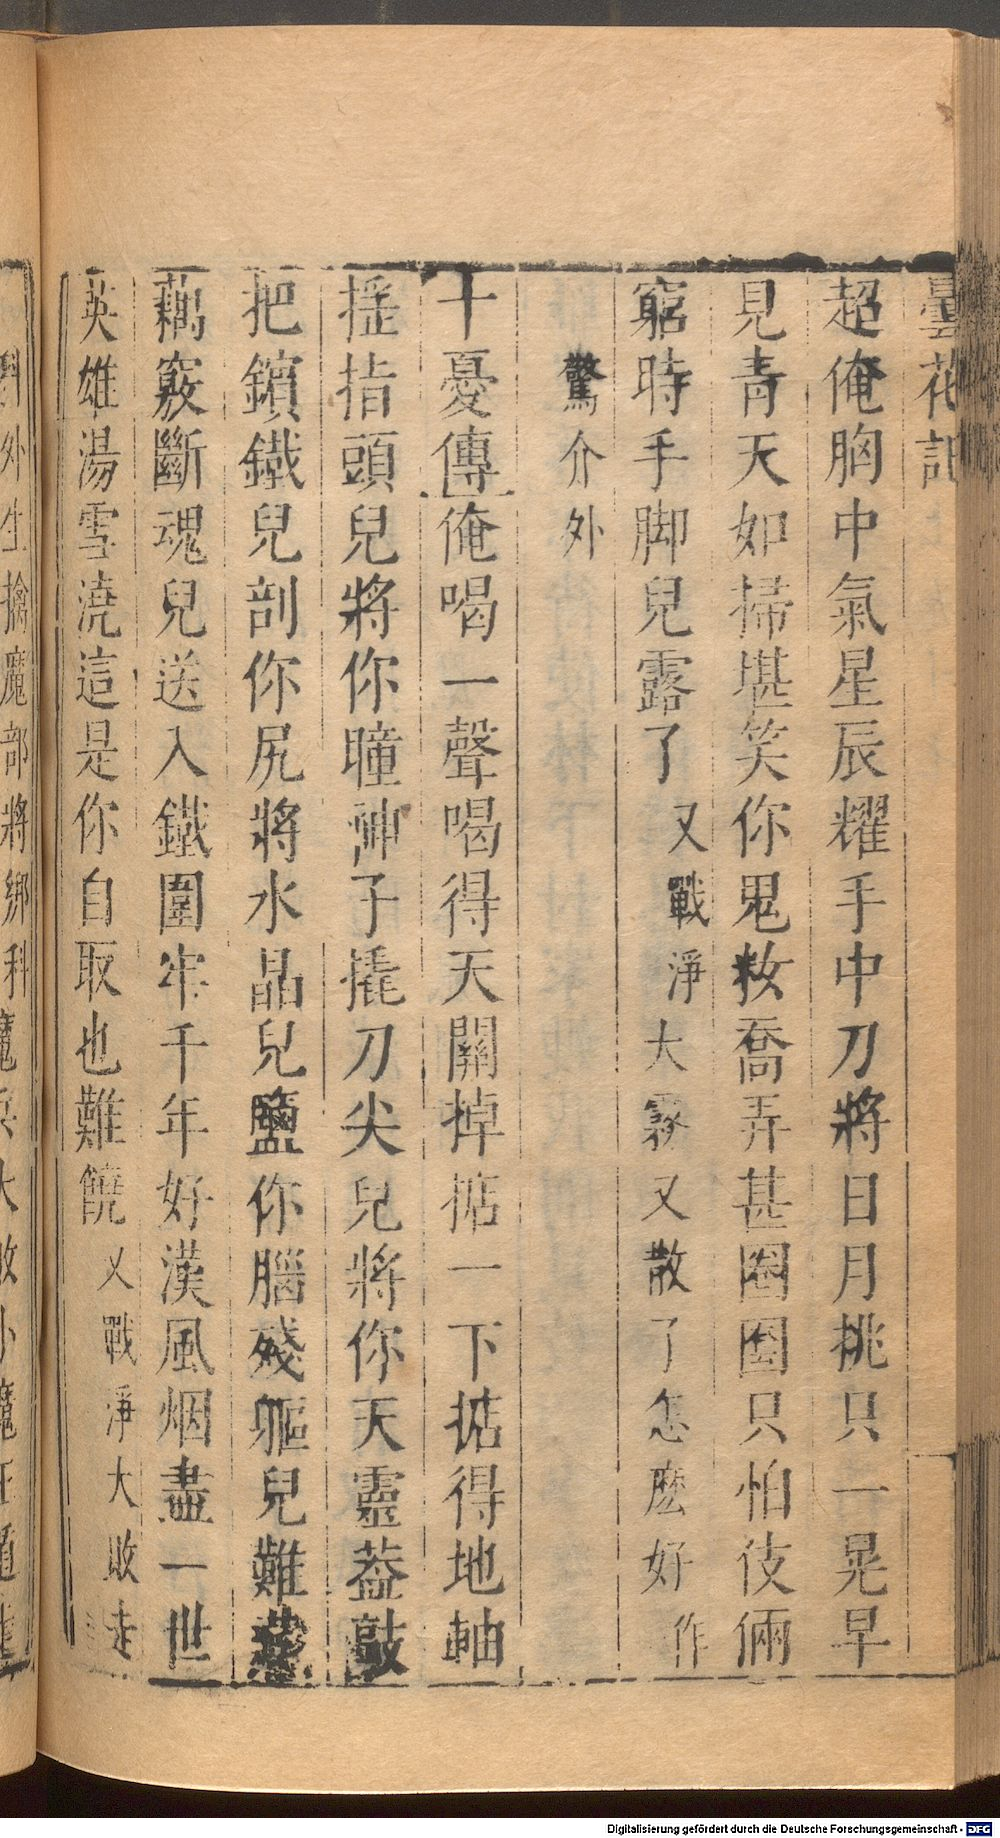 曇花記
超俺胸中氣星辰耀手中刀將日月挑只一晃早
見青天如掃堪笑你鬼妝喬弄甚圈圈只怕伎倆
窮時手脚兒露了又戰淨大霧又散了怎麽好作
驚介外
十憂傳俺喝一聲喝得天關掉掂一下掂得地軸
搖指頭兒將你瞳神子撬刀尖兒將你天靈葢敲
把鑌鐵兒剖你尻將水晶兒鹽你腦殘軀兒難
藕竅斷魂兒送入鐵圍牢千年好漢風烟盡一世
英雄湯雪澆這是你自取也難饒又戰淨大敗走
外生擒魔部將綁科魔兵大敗小魔王遁走
Digitalisierung gefördert durch die Deutsche Forschungsgemeinschaft - DFG